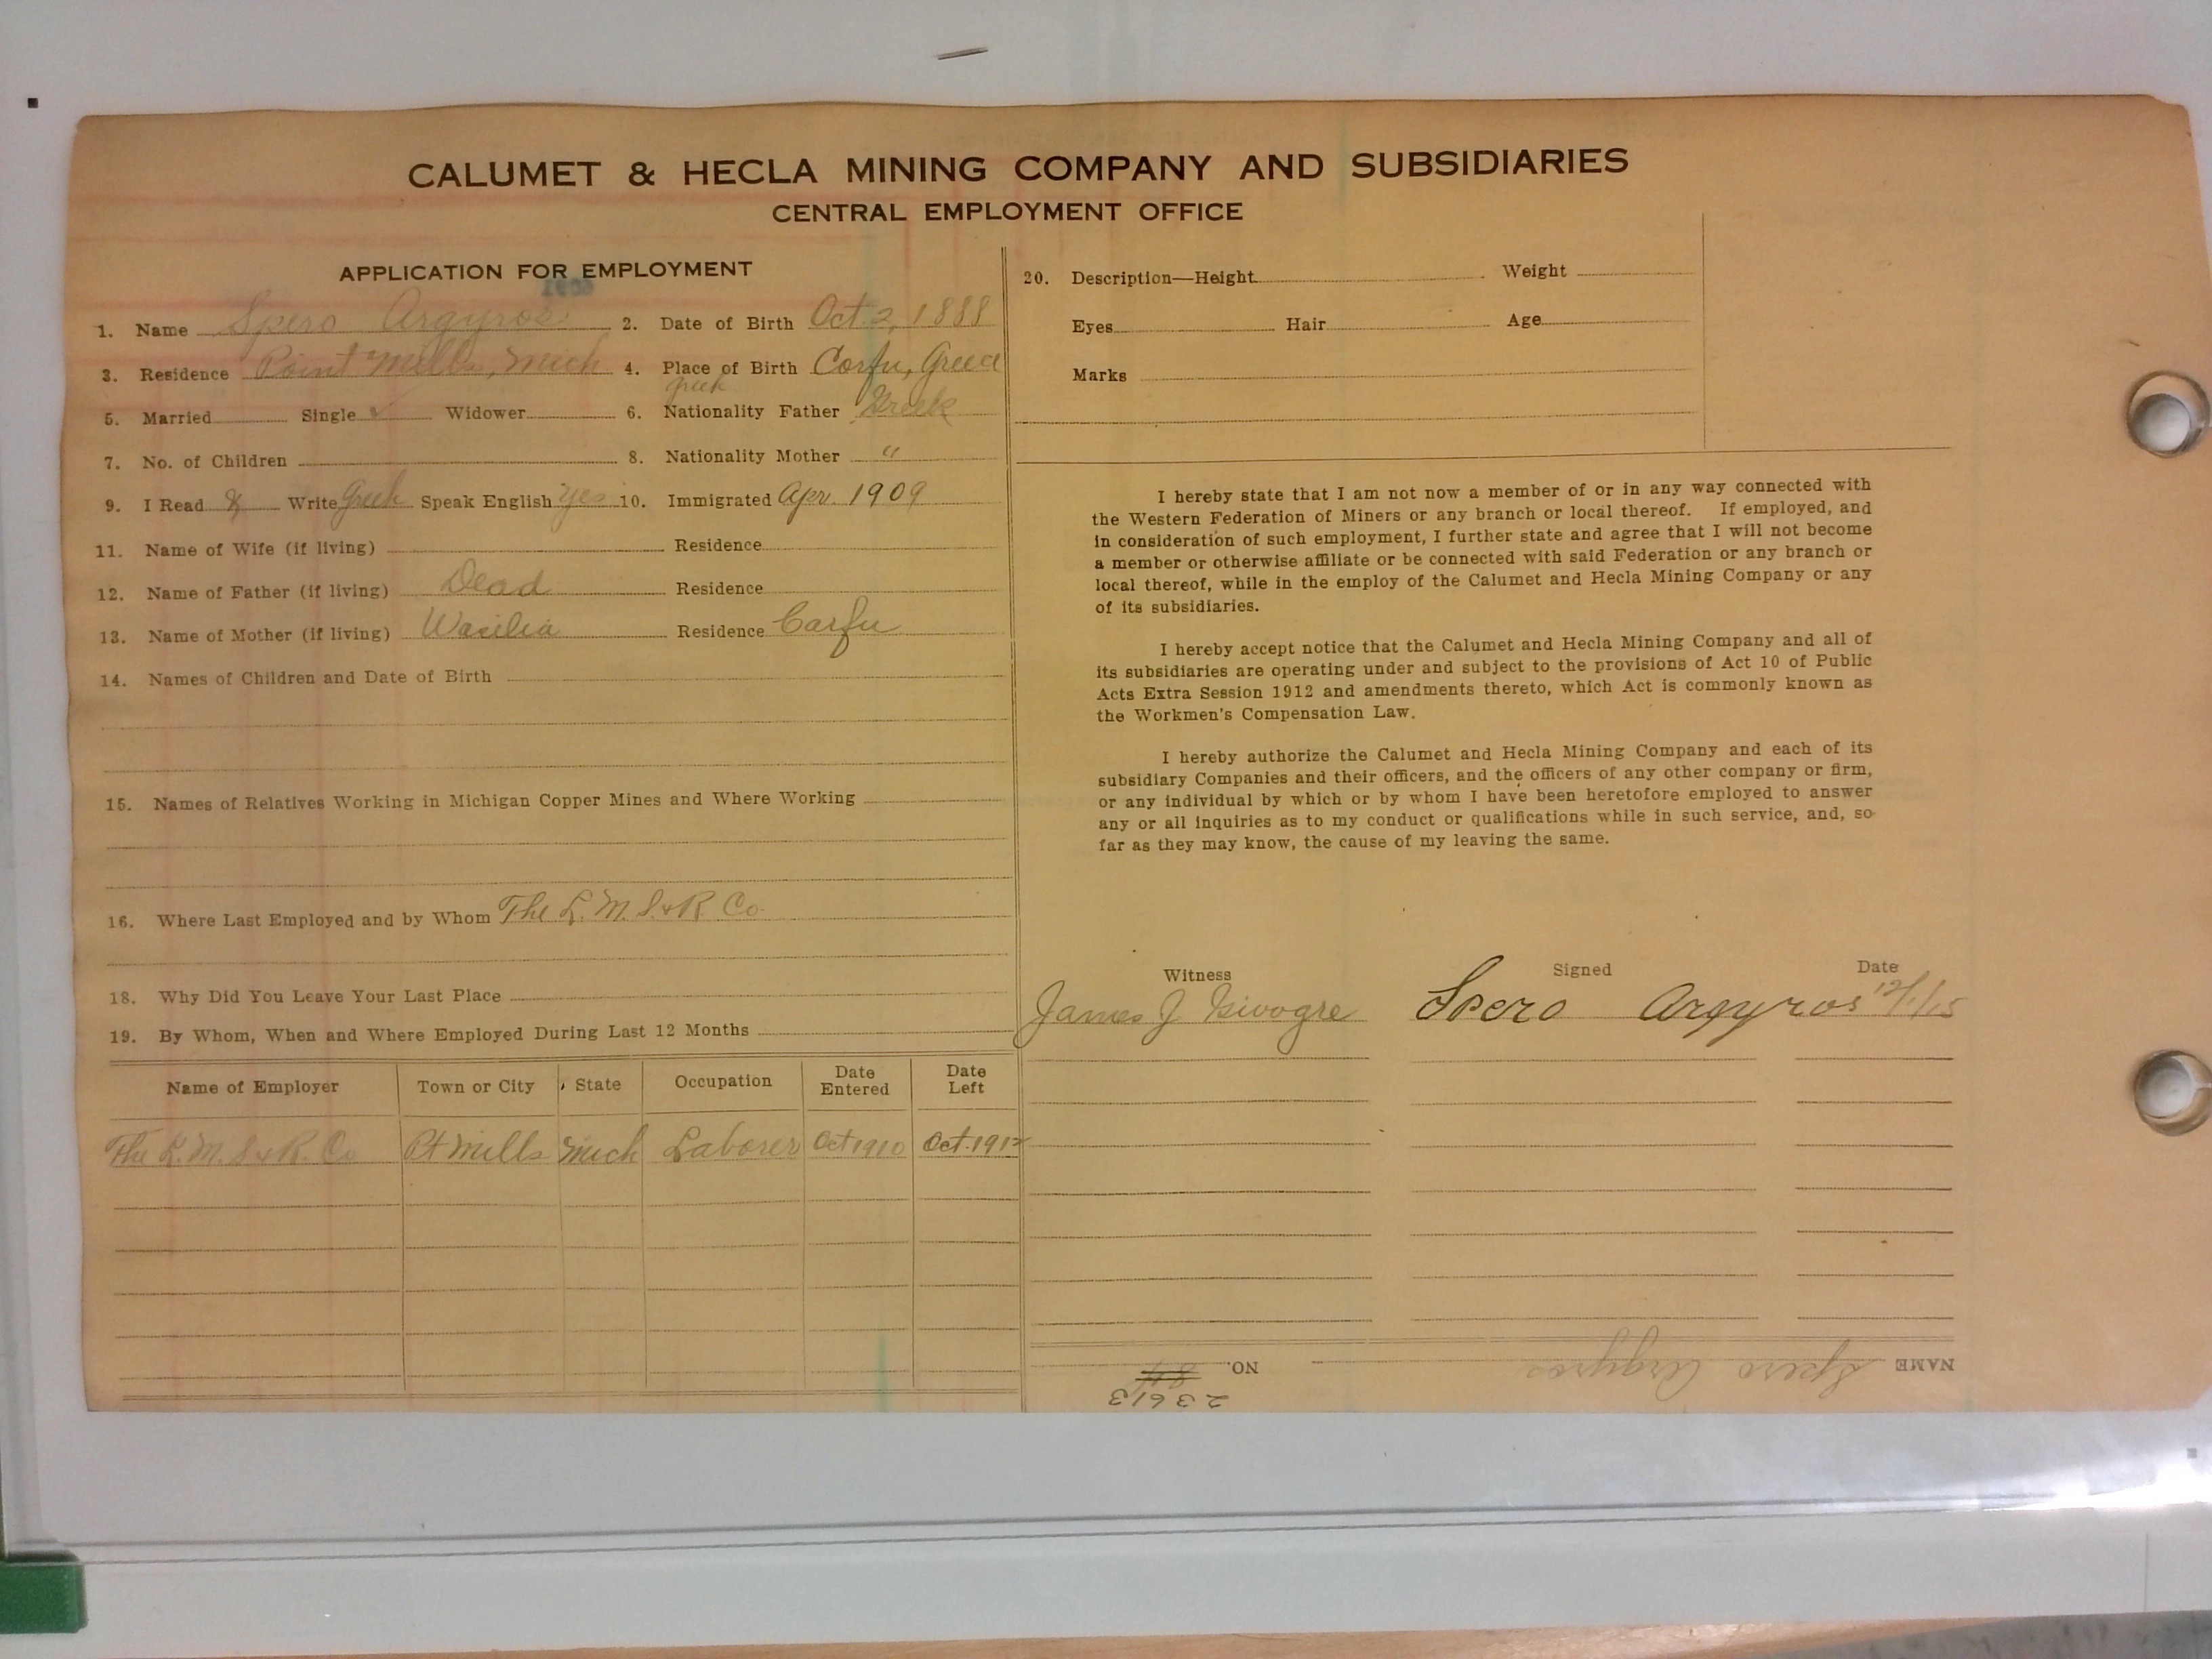 CALUMET & HECLA MINING COMPANY AND SUBSIDIARIES
CENTRAL EMPLOYMENT OFFICE
APPLICATION FOR EMPLOYMENT
1. Name Spero Argyros 2. Date of Birth Oct. 2, 1888
3. Residence Point Mills, Mich 4. Place of Birth Corfu, Greece
greek
5. Married Single ✓ Widower 6. Nationality Father Greek
7. No. of Children 8. Nationality Mother "
9. I Read & Write Greek Speak English yes 10. Immigrated Apr. 1909
11. Name of Wife (if living) Residence
12. Name of Father (if living) Dead Residence
13. Name of Mother (if living) Wasilia Residence Carfu
14. Names of Children and Date of Birth
15. Names of Relatives Working in Michigan Copper Mines and Where Working
16. Where Last Employed and by Whom The L. M. S. & R. Co.
18. Why Did You Leave Your Last Place
19. By Whom, When and Where Employed During Last 12 Months
Name of Employer Town or City State Occupation Date Entered Date Left
The L. M. S. & R. Co Pt Mills Mich Laborer Oct 1910 Oct. 1912
20. Description—Height Weight
Eyes Hair Age
Marks
I hereby state that I am not now a member of or in any way connected with
the Western Federation of Miners or any branch or local thereof. If employed, and
in consideration of such employment, I further state and agree that I will not become
a member or otherwise affiliate or be connected with said Federation or any branch or
local thereof, while in the employ of the Calumet and Hecla Mining Company or any
of its subsidiaries.
I hereby accept notice that the Calumet and Hecla Mining Company and all of
its subsidiaries are operating under and subject to the provisions of Act 10 of Public
Acts Extra Session 1912 and amendments thereto, which Act is commonly known as
the Workmen's Compensation Law.
I hereby authorize the Calumet and Hecla Mining Company and each of its
subsidiary Companies and their officers, and the officers of any other company or firm,
or any individual by which or by whom I have been heretofore employed to answer
any or all inquiries as to my conduct or qualifications while in such service, and, so
far as they may know, the cause of my leaving the same.
Witness Signed Date
James J. Spero Argyros 12/1/15
NAME Spero Argyros NO. 84
23613